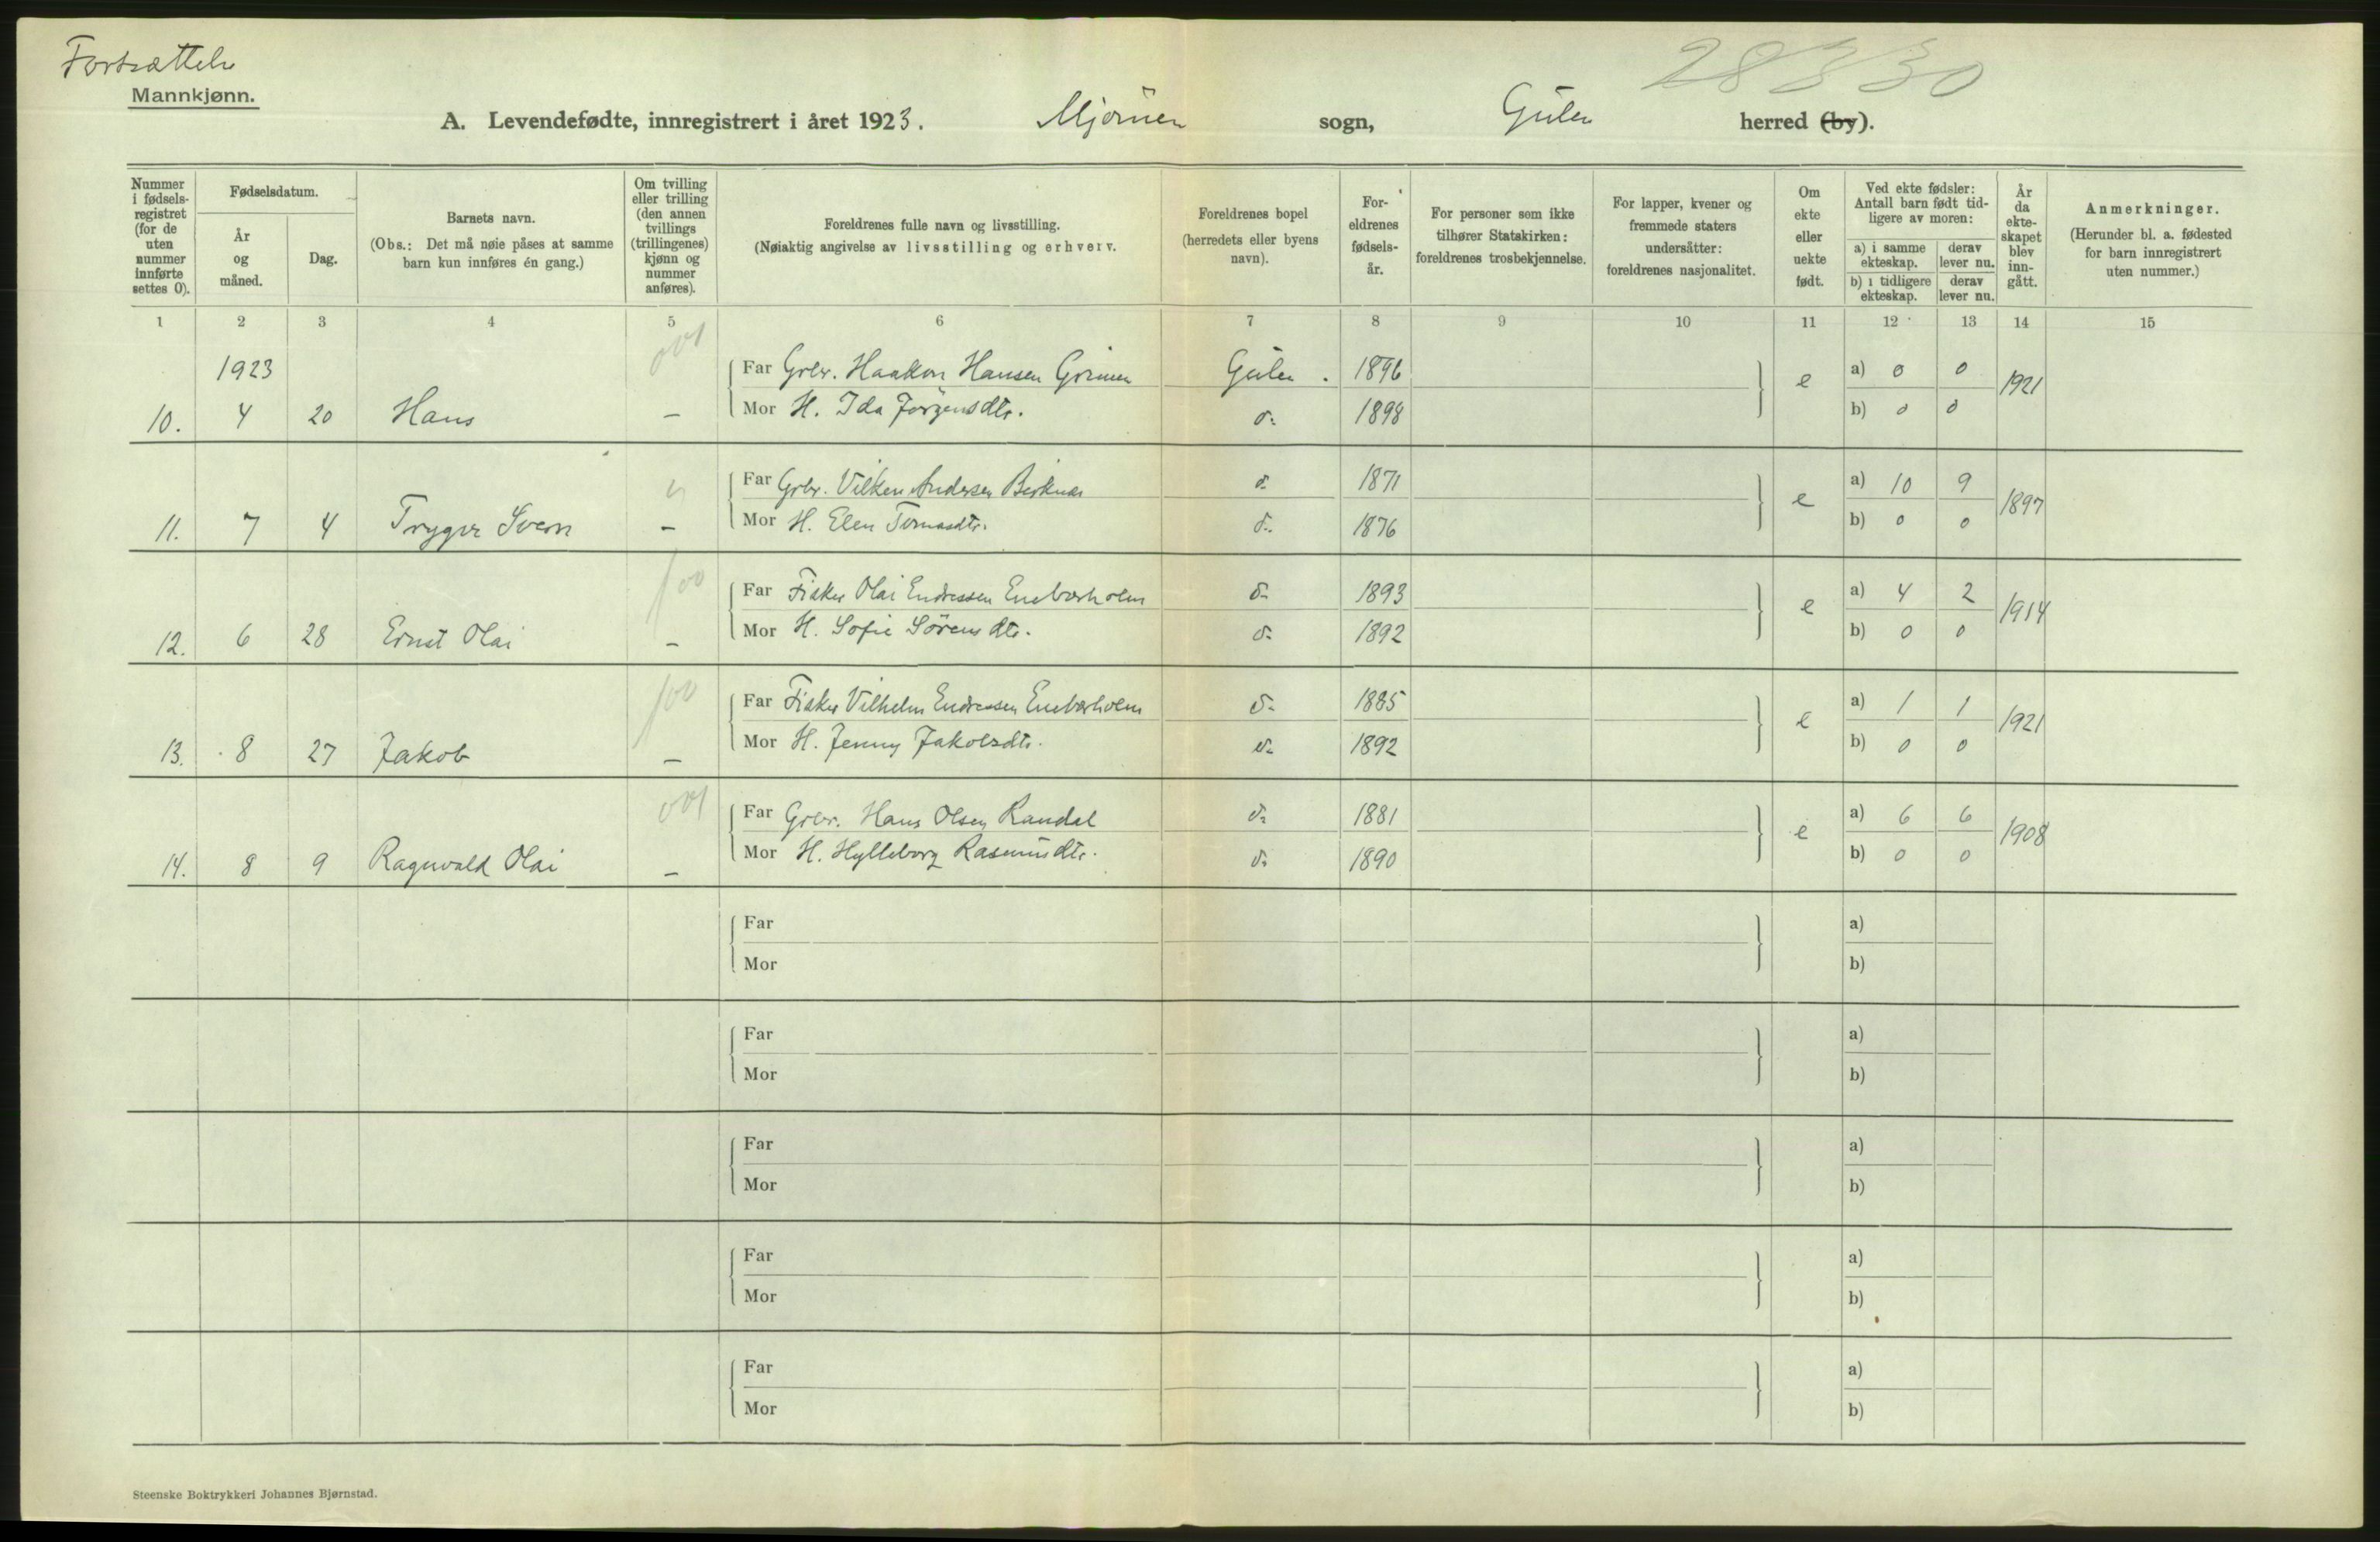 Fortsættelse
Mannkjønn.
28330
A. Levendefødte, innregistrert i året 1923. Mjømen sogn, Gulen herred (by).
Nummer i fødselsregistret (for de uten nummer innførte settes 0).
Fødselsdatum.
År og måned.
Dag.
Barnets navn.
(Obs.: Det må nøie påses at samme barn kun innføres én gang.)
Om tvilling eller trilling (den annen tvillings (trillingenes) kjønn og nummer anføres).
Foreldrenes fulle navn og livsstilling.
(Nøiaktig angivelse av livsstilling og erhverv.
Foreldrenes bopel (herredets eller byens navn).
Foreldrenes fødselsår.
For personer som ikke tilhører Statskirken: foreldrenes trosbekjennelse.
For lapper, kvener og fremmede staters undersåtter: foreldrenes nasjonalitet.
Om ekte eller uekte født.
Ved ekte fødsler: Antall barn født tidligere av moren:
a) i samme ekteskap. derav lever nu.
b) i tidligere ekteskap. derav lever nu.
År da ekteskapet blev inngått.
Anmerkninger.
(Herunder bl. a. fødested for barn innregistrert uten nummer.)
1 2 3 4 5 6 7 8 9 10 11 12 13 14 15
1923 001 Far Grbr. Haakon Hansen Grimen Gulen. 1896 e a) 0 0 1921
10. 4 20 Hans — Mor H. Ida Jørgensdtr. d: 1898 b) 0 0
Far Grbr. Vilken Andersen Birknes d. 1871 e a) 10 9 1897
11. 7 4 Trygve Svern — Mor H. Elen Tomasdtr. d:. 1876 b) 0 0
100 Far Fisker Olai Endressen Enebærholm d- 1893 e a) 4 2 1914
12. 6 28 Ernst Olai — Mor H. Sofie Sørensdtr. d- 1892 b) 0 0
100 Far Fisker Vilhelm Endressen Enebærholm d- 1885 e a) 1 1 1921
13. 8 27 Jakob — Mor H. Jenny Jakobsdtr. d- 1892 b) 0 0
001 Far Grbr. Hans Olsen Randal d: 1881 e a) 6 6 1908
14. 8 9 Ragnvald Olai — Mor H. Hylleborg Rasmusdtr. d: 1890 b) 0 0
Far a)
Mor b)
Far a)
Mor b)
Far a)
Mor b)
Far a)
Mor b)
Far a)
Mor b)
Steenske Boktrykkeri Johannes Bjørnstad.